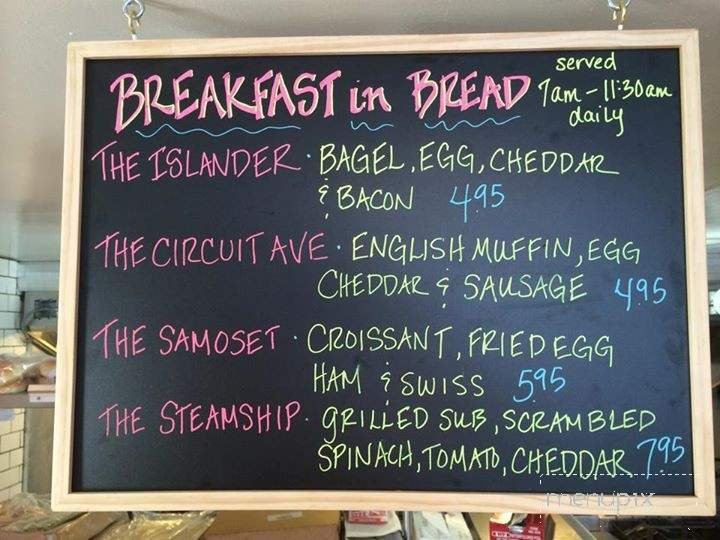 BREAKFAST in BREAD
served
7am - 11:30am
daily
THE ISLANDER · BAGEL, EGG, CHEDDAR
& BACON 4.95
THE CIRCUIT AVE · ENGLISH MUFFIN, EGG
CHEDDAR & SAUSAGE 4.95
THE SAMOSET · CROISSANT, FRIED EGG
HAM & SWISS 5.95
THE STEAMSHIP · GRILLED SUB, SCRAMBLED
SPINACH, TOMATO, CHEDDAR 7.95
menupix